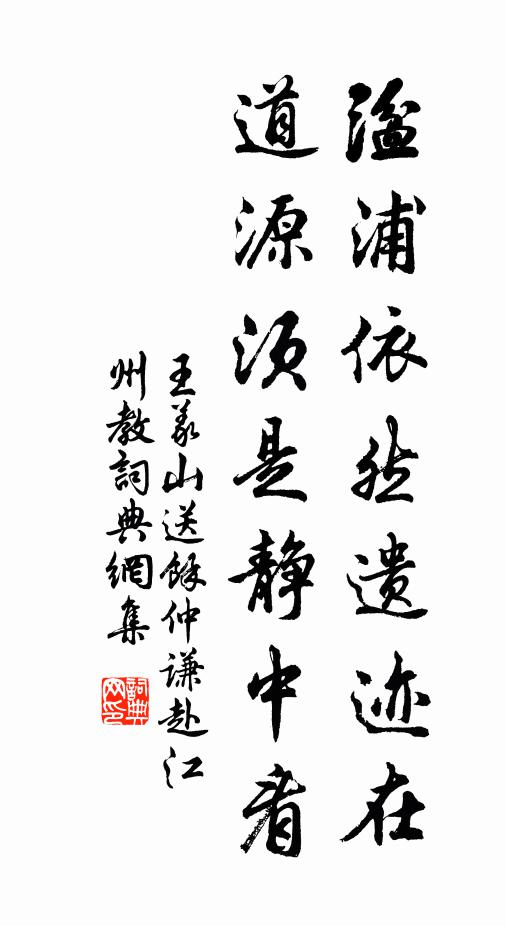 溢浦依然遗迹在
道源须是静中看
王义山送馀仲谦赴江
州教词典網集
詞典網印